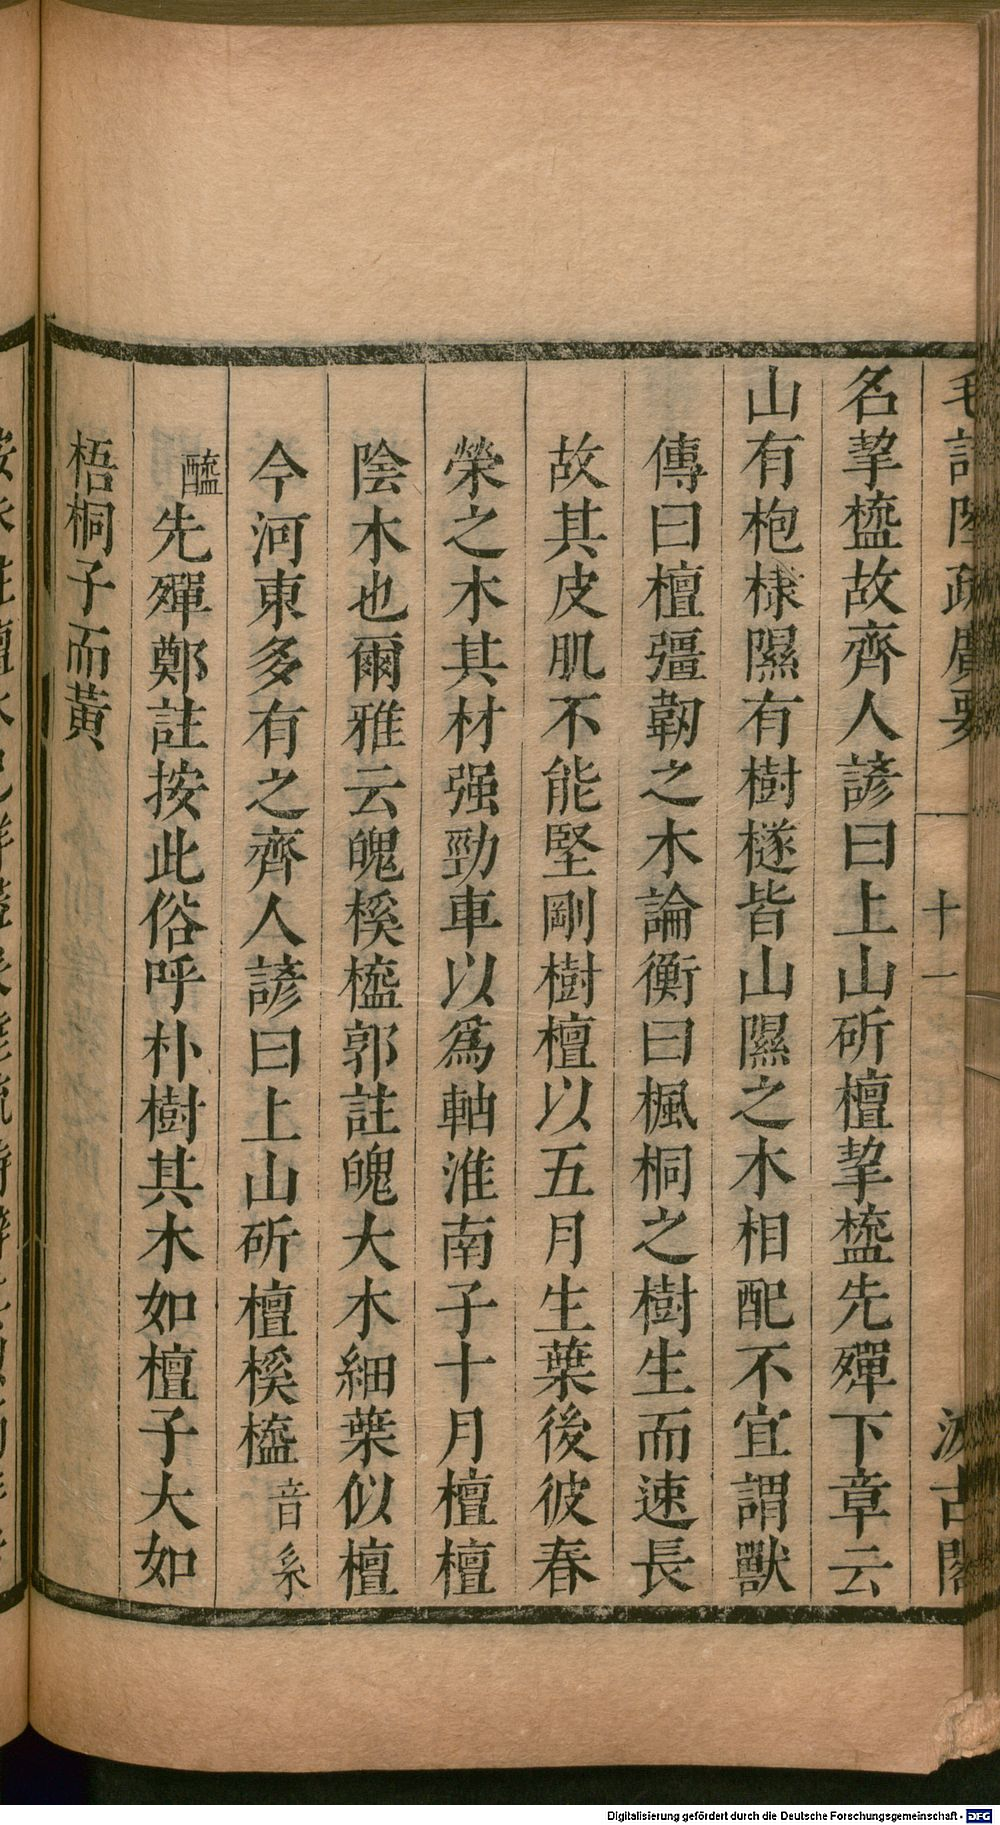 毛詩陸疏廣要
十一
汲古閣
名挈橀故齊人諺曰上山斫檀挈橀先殫下章云
山有枹棣隰有樹檖皆山隰之木相配不宜謂獸
傳曰檀彊韌之木論衡曰楓桐之樹生而速長
故其皮肌不能堅剛樹檀以五月生葉後彼春
榮之木其材强勁車以爲軸淮南子十月檀檀
陰木也爾雅云魄榽橀郭註魄大木細葉似檀
今河東多有之齊人諺曰上山斫檀榽橀音系
醯先殫鄭註按此俗呼朴樹其木如檀子大如
梧桐子而黃
Digitalisierung gefördert durch die Deutsche Forschungsgemeinschaft - DFG